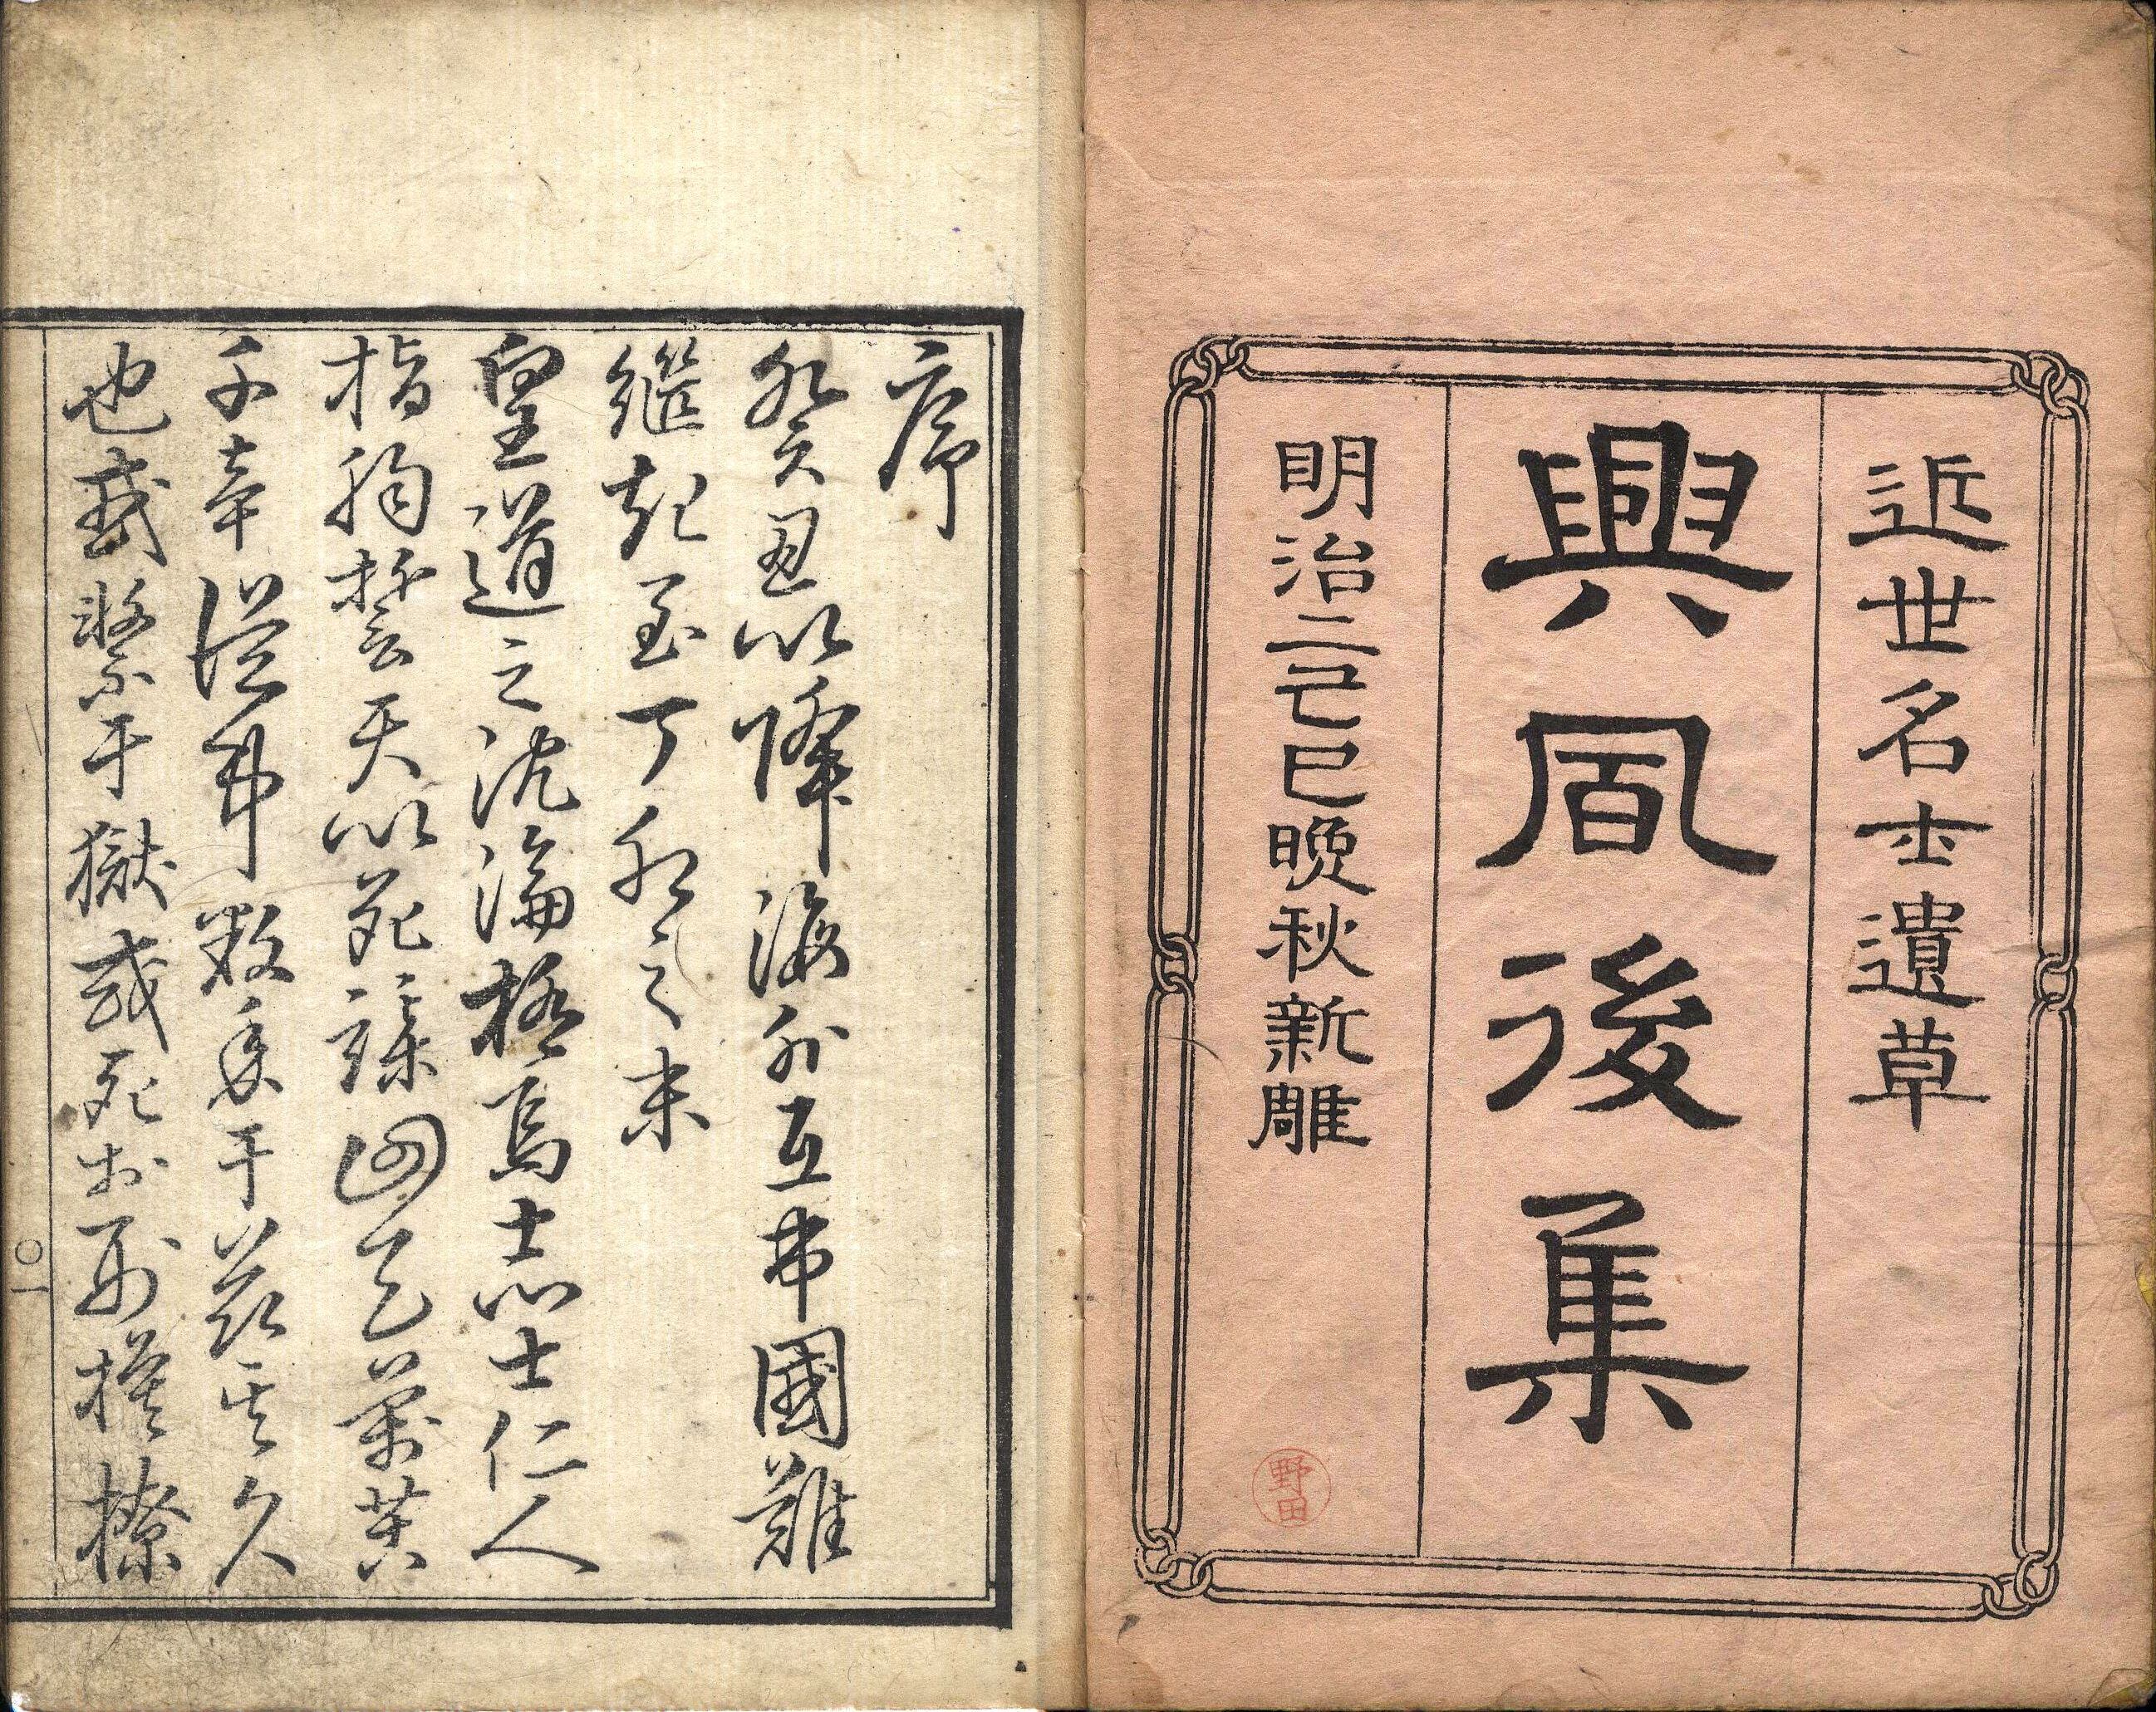 近世名士遺草
興風後集
明治二己巳晩秋新雕
野田
序
癸丑以降海外互市國難
繼起至丁卯之末
皇道之沈淪極焉志士仁人
指胸誓天以死謀回之萬
千辛從事數年于茲其久
也或繫于獄或死於
〇一